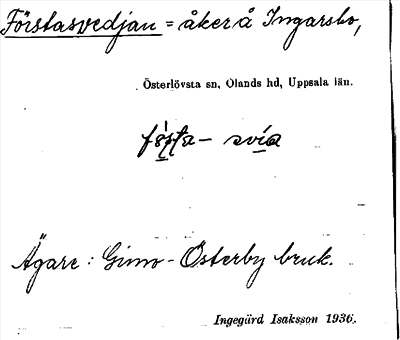 Förstasvedjan = åker å Ingarsbo,
Österlövsta sn, Olands hd, Uppsala län.
Ägare: Gimo-Österby bruk.
Ingegärd Isaksson 1936.